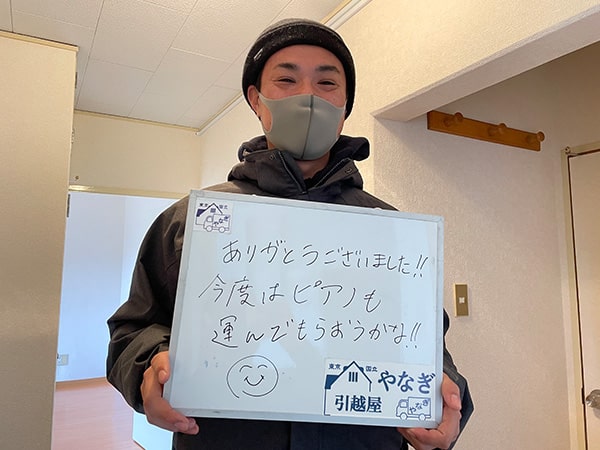 東京 国立
やなぎ
ありがとうございました!!
今度はピアノも
運んでもらおうかな!!
東京 国立
やなぎ
引越屋
やなぎ